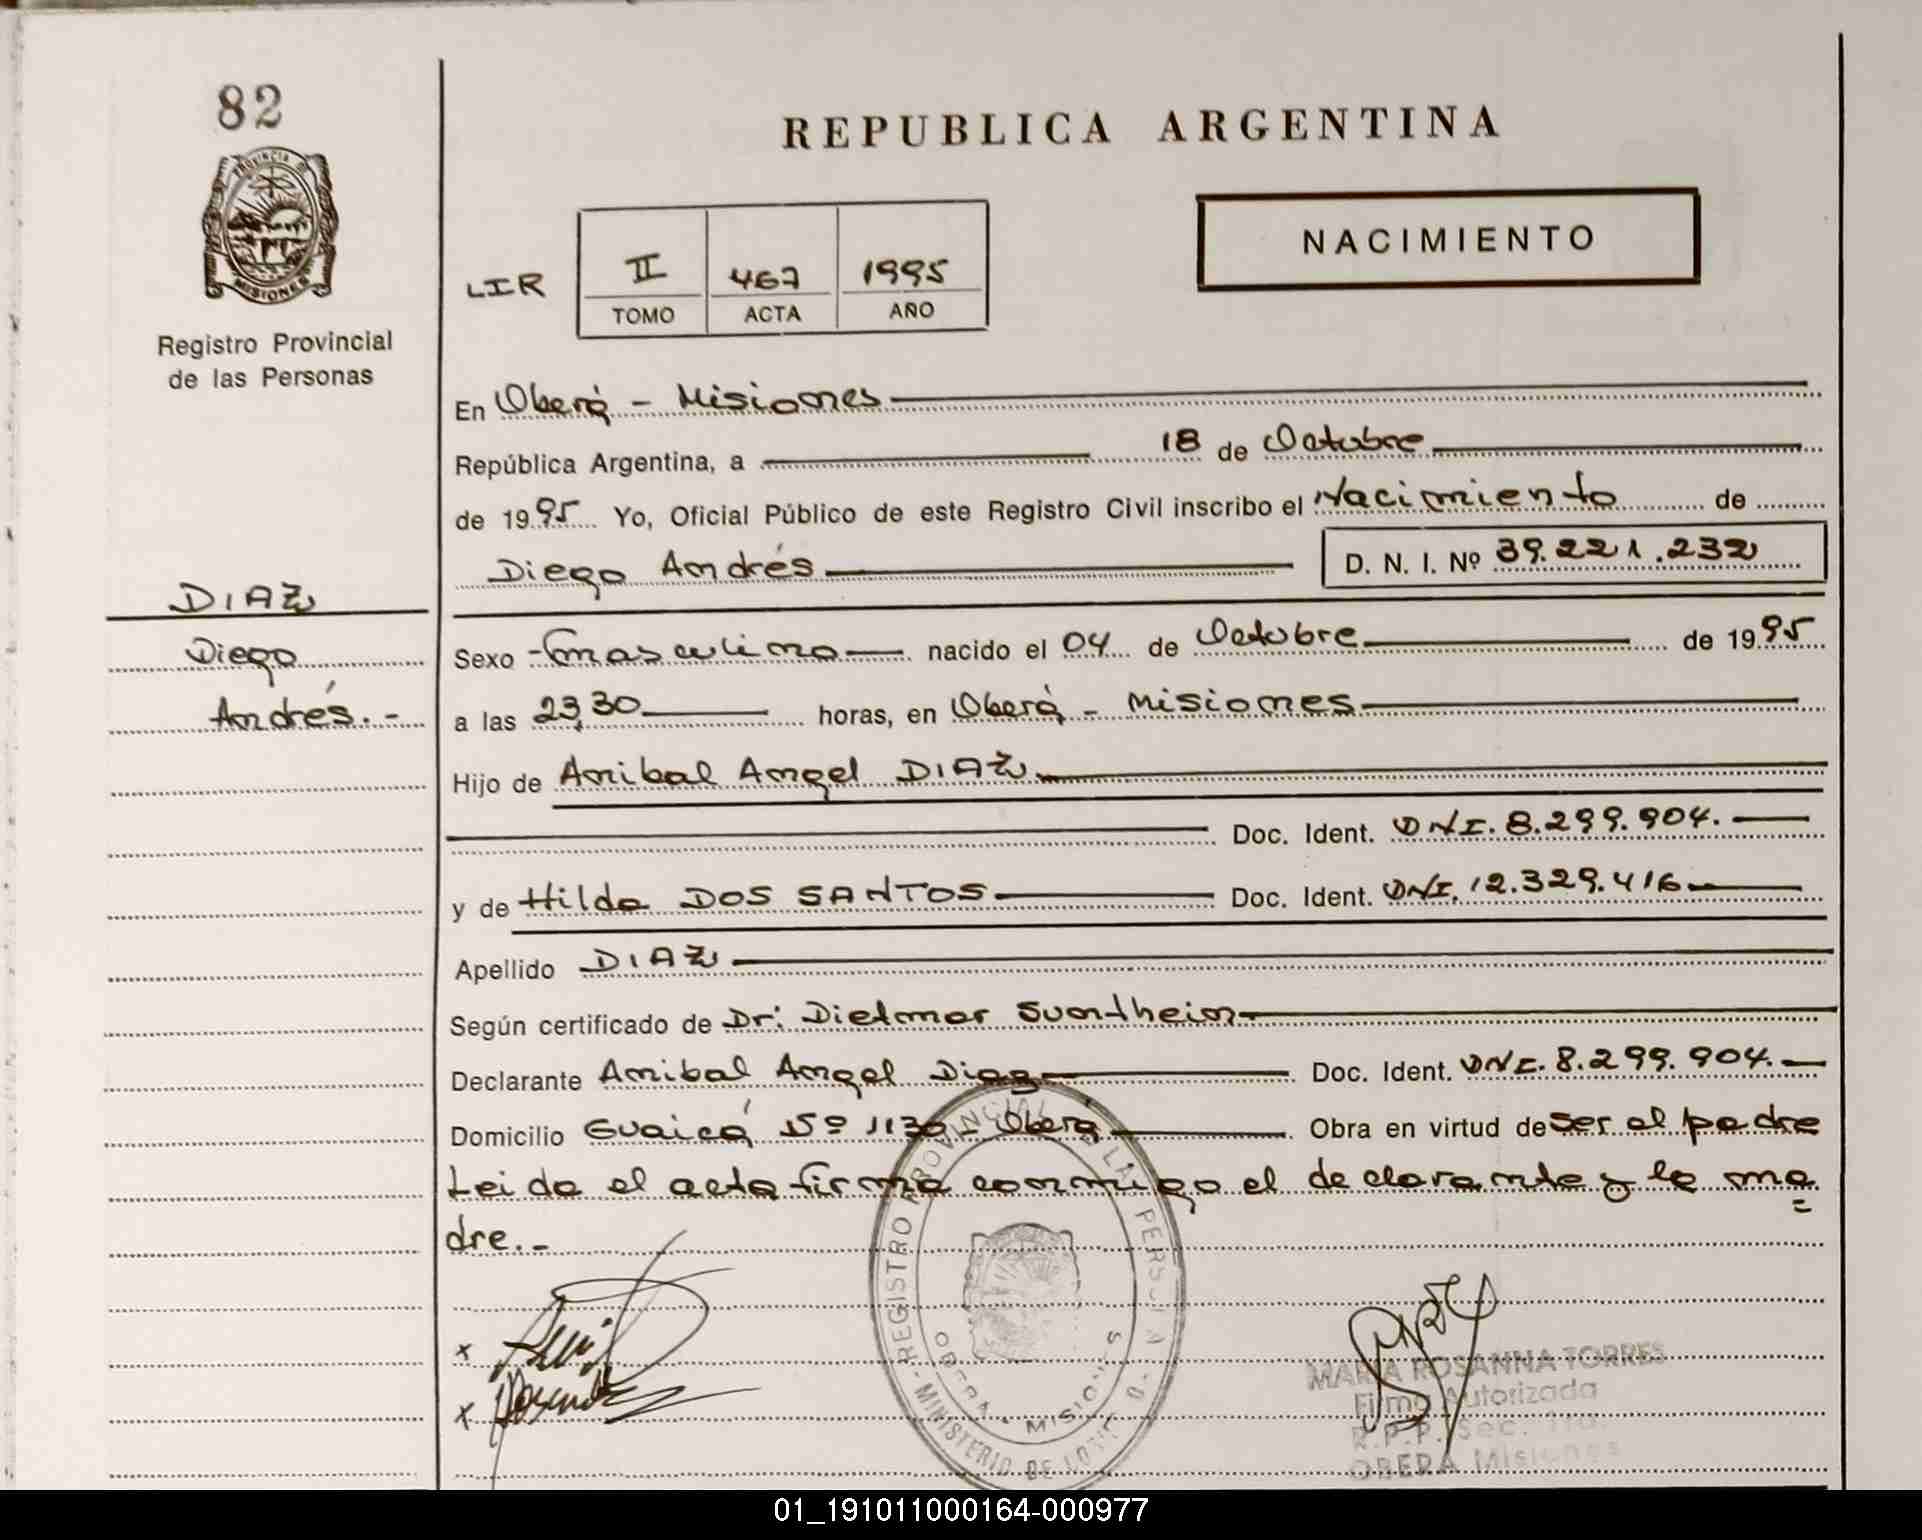 82
REPUBLICA ARGENTINA
PROVINCIA D
MISIONES
Registro Provincial
de las Personas
NACIMIENTO
LIR
II 467 1995
TOMO ACTA AÑO
En Oberá - Misiones
República Argentina, a 18 de Octubre
de 1995 Yo, Oficial Público de este Registro Civil inscribo el Nacimiento de
Diego Andrés D. N. I. Nº 39.221.232
DIAZ
Diego
Andrés.-
Sexo masculino nacido el 04 de Octubre de 1995
a las 23,30 horas, en Oberá - Misiones
Hijo de Anibal Angel DIAZ
Doc. Ident. DNI. 8.299.904.
y de Hilda DOS SANTOS Doc. Ident. DNI. 12.329.416
Apellido DIAZ
Según certificado de Dr: Dietmar Suntheim
Declarante Anibal Angel Diaz Doc. Ident. DNI. 8.299.904.
Domicilio Guaicá Nº 1130 - Oberá Obra en virtud de ser el padre
Leida el acta firma conmigo el declarante y la ma=
dre.-
REGISTRO PROVINCIAL DE LAS PERSONAS
OBERA - MISIONES
MINISTERIO DE
MARIA ROSANNA TORRES
Firma Autorizada
R.P.P. Sec. 1ra.
OBERA Misiones
01_191011000164-000977